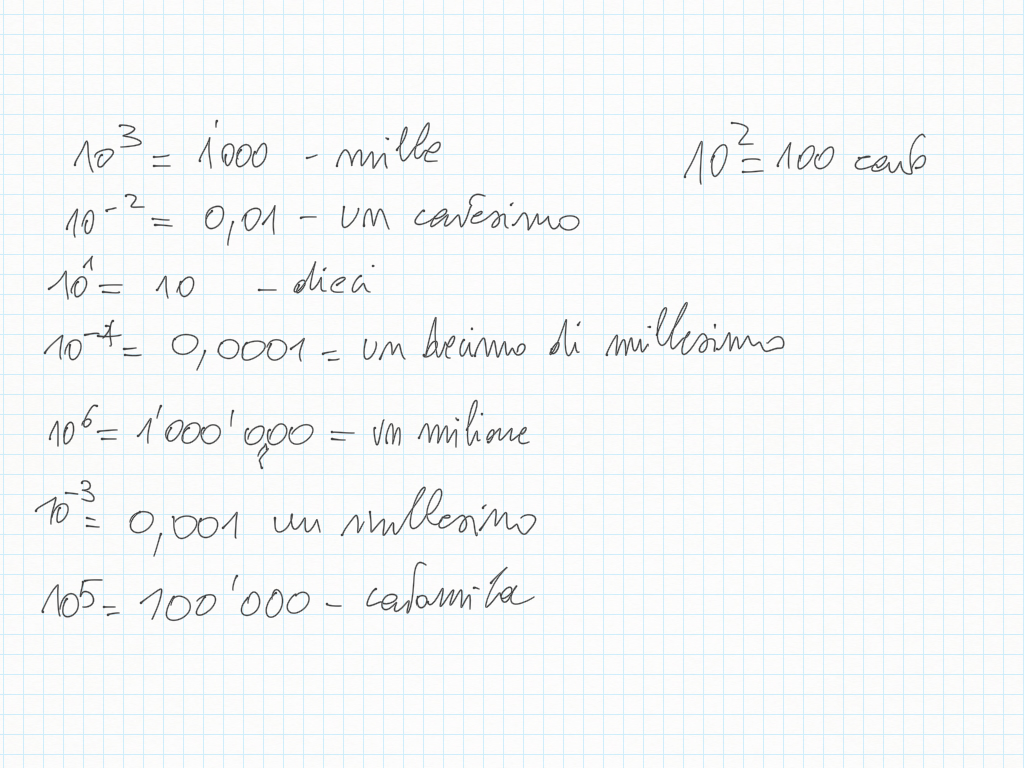 10³ = 1'000 - mille 10² = 100 cento
10⁻² = 0,01 - un centesimo
10¹ = 10 - dieci
10⁻⁴ = 0,0001 = un decimo di millesimo
10⁶ = 1'000'000 = un milione
10⁻³ = 0,001 un millesimo
10⁵ = 100'000 - centomila